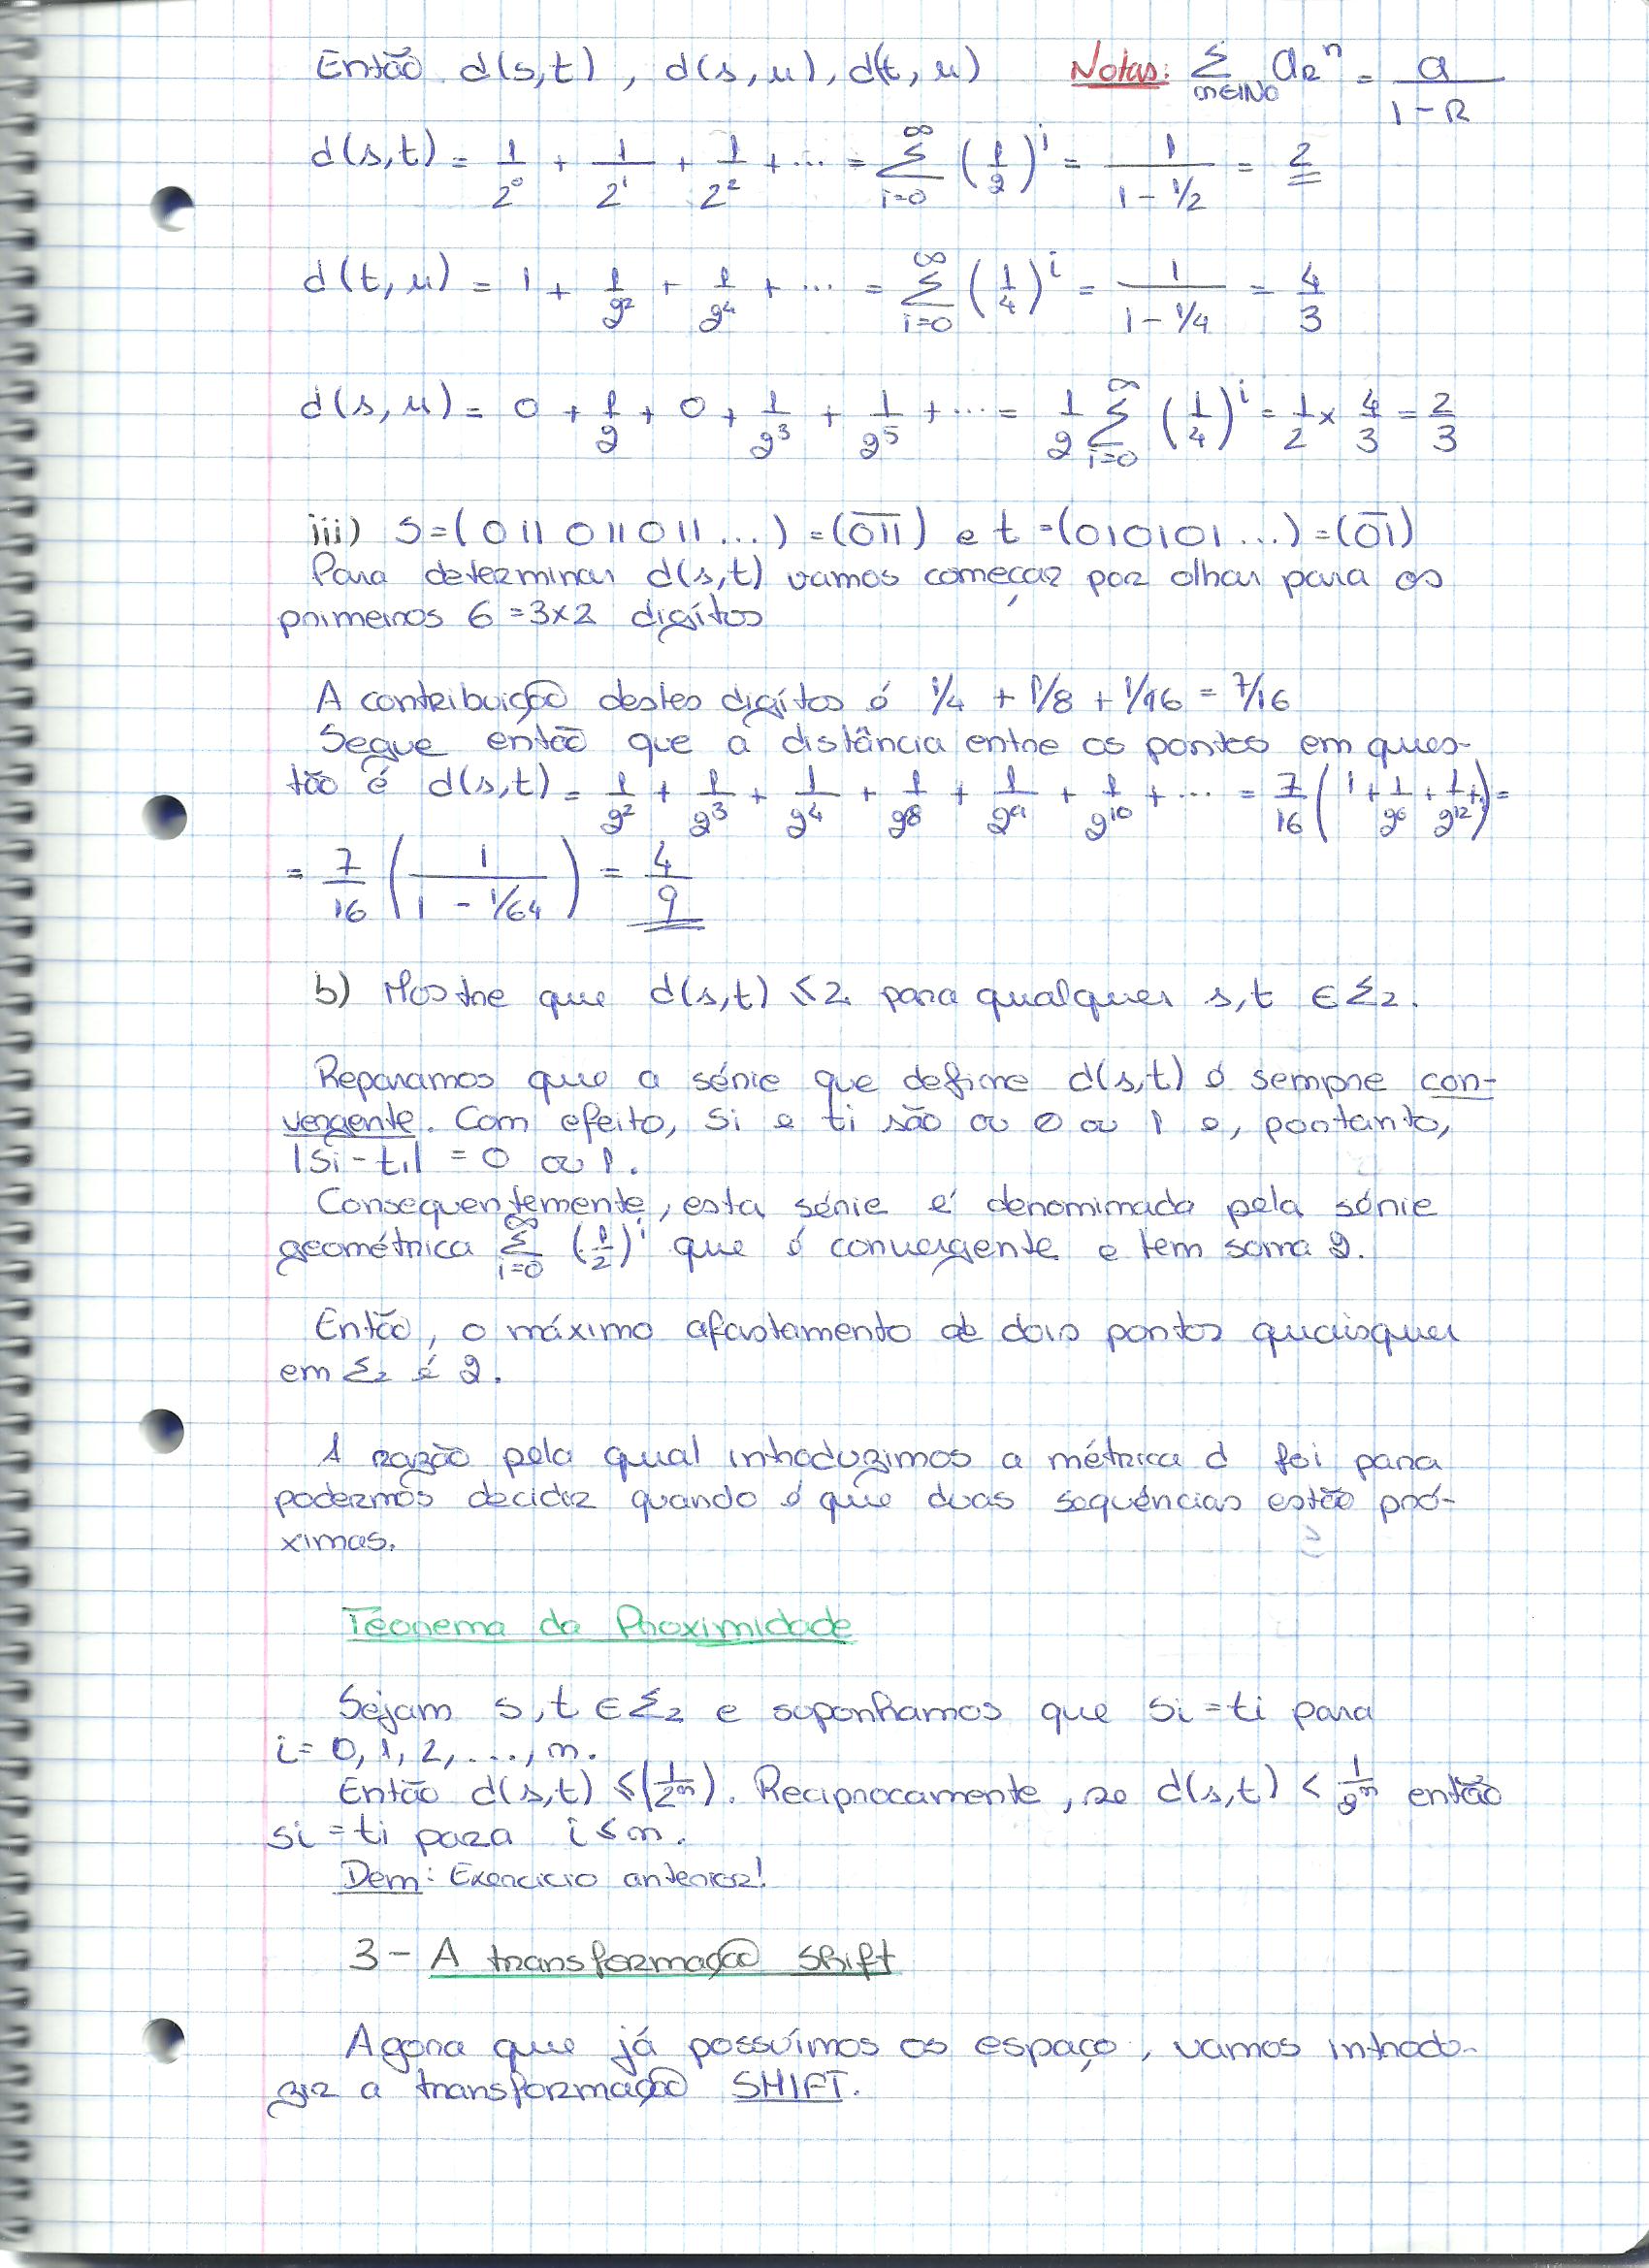 Então d(s,t), d(s,u), d(t,u) Notas: Σ_{n∈ℕ₀} aR^n = a/(1-R)
d(s,t) = 1/2^0 + 1/2^1 + 1/2^2 + ... = Σ_{i=0}^∞ (1/2)^i = 1/(1-1/2) = 2
d(t,u) = 1 + 1/2^2 + 1/2^4 + ... = Σ_{i=0}^∞ (1/4)^i = 1/(1-1/4) = 4/3
d(s,u) = 0 + 1/2 + 0 + 1/2^3 + 1/2^5 + ... = 1/2 Σ_{i=0}^∞ (1/4)^i = 1/2 × 4/3 = 2/3
iii) S=(011 011 011...) = (\overline{011}) e t=(010101...) = (\overline{01})
Para determinar d(s,t) vamos começar por olhar para os
primeiros 6=3×2 digítos
A contribuição destes digítos é 1/4 + 1/8 + 1/16 = 7/16
Segue então que a distância entre os pontos em ques-
tão é d(s,t) = 1/2^2 + 1/2^3 + 1/2^4 + 1/2^8 + 1/2^9 + 1/2^10 + ... = 7/16 (1 + 1/2^6 + 1/2^12 + ..) =
= 7/16 (1/(1 - 1/64)) = 4/9
b) Mostre que d(s,t) ≤ 2 para qualquer s,t ∈ Σ₂.
Reparamos que a série que define d(s,t) é sempre con-
vergente. Com efeito, si e ti são ou 0 ou 1 e, portanto,
|si - ti| = 0 ou 1.
Consequentemente, esta série é denominada pela série
geométrica Σ_{i=0}^∞ (1/2)^i que é convergente e tem soma 2.
Então, o máximo afastamento de dois pontos quaisquer
em Σ₂ é 2.
A razão pela qual introduzimos a métrica d foi para
podermos decidir quando é que duas sequências estão pró-
ximas.
Teorema da Proximidade
Sejam s,t ∈ Σ₂ e suponhamos que si = ti para
i= 0, 1, 2, ..., n.
Então d(s,t) ≤ (1/2^n). Reciprocamente, se d(s,t) < 1/2^n então
si = ti para i ≤ n.
Dem: Exercicio anterior!
3- A transformação Shift
Agora que já possuímos os espaço, vamos introdu-
zir a transformação SHIFT.